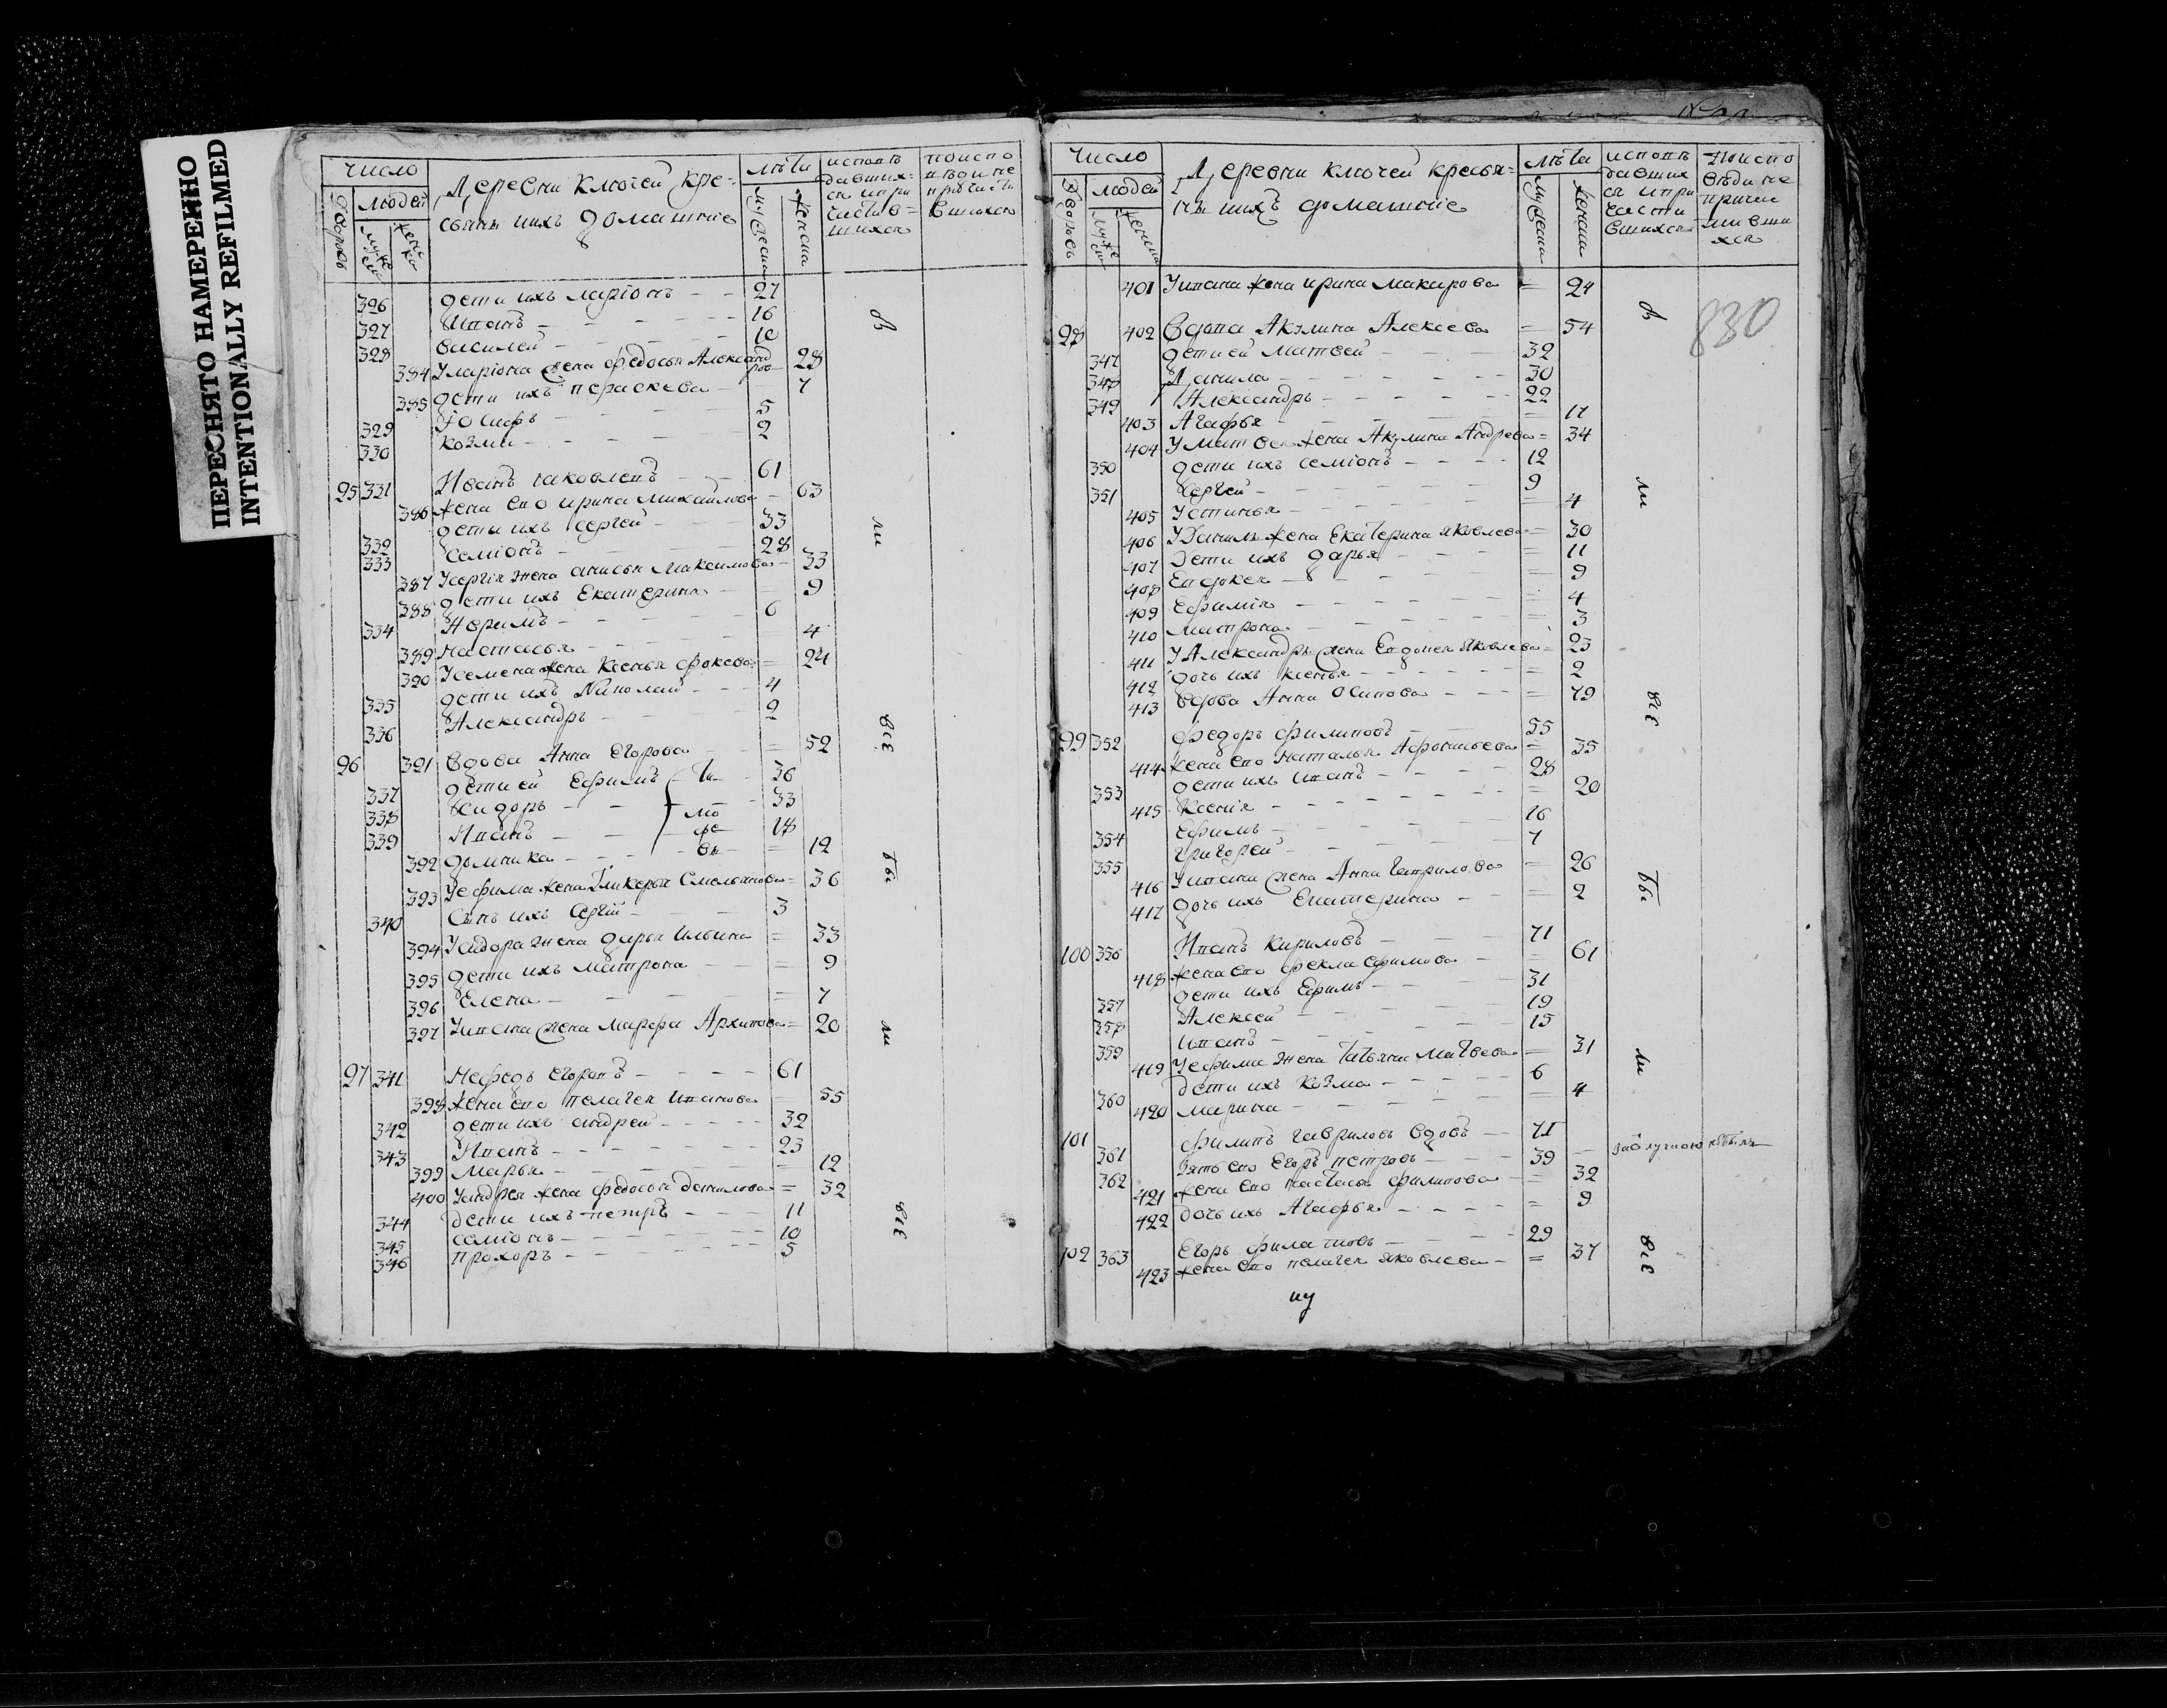 ПЕРЕСНЯТО НАМЕРЕННО
INTENTIONALLY REFILMED
число
людей
дворовъ
Деревни ключей кре-
сьяны ихъ домашніе
лѣта
мужеска
женска
исповѣ
давших-
ся и при
частив-
шихся
326 дети ихъ ларіонъ 27
327 Иванъ 16
328 василей 10
384 У ларіона жена федосья Александ
ров 28
385 дети ихъ параскева 7
329 Іосифъ 5
330 козма 2
95 331 Иванъ яковлевъ 61
386 жена ево ирина михайлова 63
332 дети ихъ сергей 33
333 семіонъ 28
387 У сергія жена анисья Максимова 33
388 дети ихъ Екатерина 9
334 6
389 настасья 4
390 У семена жена Ксенья фокева 24
335 дети ихъ Николай 4
336 Александръ 2
96 391 вдова Анна Егорова = 52
337 дети ей Ефимъ 36
338 сидоръ 33
339 Иванъ 18
392 домника = 12
393 У ефима жена Гликерья Смельянова = 36
340 Сынъ ихъ Сергій 3
394 У сидора жена дарья ильина = 33
395 дети ихъ матрона = 9
396 Елена = 7
397 У ивана жена марфа Архипова = 20
97 341 Нефедъ Егоровъ 61
398 жена ево пелагея иванова 55
342 дети ихъ андрей 32
343 Иванъ 23
399 Марья = 12
400 У андрея жена федосья данилова = 32
344 дети ихъ петръ 11
345 семіонъ 10
346 прохоръ 5
въ
ли
всѣ
бы
ли
всѣ
число
людей
дворовъ
Деревни ключей кресья-
ны ихъ домашніе
лѣта
мужеска
женска
исповѣ
давших
ся и при
части
вшихся
поиспо
вѣди не
причас
тивши
хся
830
401 У ивана жена ирина макарова = 24
98 402 вдова Акулина Алексева = 54
347 дети ей матвей 32
348 Данила 30
349 Александръ 22
403 Агафья = 17
404 У матвея жена Акулина Андрева = 34
350 дети ихъ семіонъ 12
351 Сергей 9
405 Устинья = 4
406 У данилы жена Екатерина яковлева = 30
407 дети ихъ дарья = 11
408 Евдокея = 9
409 ефимія = 4
410 матрона = 3
411 У Александра жена Евдокея яковлева = 23
412 дочь ихъ ксенья = 2
413 вдова Анна Осипова = 79
99 352 федоръ филиповъ 55
414 жена ево наталья Афонасьева = 35
353 дети ихъ иванъ 28
415 Ксенія = 20
354 ефимъ 16
355 григорей 7
416 У ивана жена Анна гаврилова = 26
417 дочь ихъ Екатерина = 2
100 356 Иванъ кириловъ 71
418 жена ево фекла ефимова = 61
357 дети ихъ Ефимъ 31
358 Алексей 19
359 иванъ 15
419 У ефима жена татьяна матвева = 31
360 дети ихъ козма 6
420 марина = 4
101 361 филипъ гавриловъ вдовъ 71
362 зять ево Егоръ петровъ 39
421 жена ево настасья филипова = 32
422 дочь ихъ Агафья = 9
102 363 Егоръ филатовъ 29
423 жена ево пелагея яковлева = 37
въ
ли
всѣ
бы
ли
всѣ